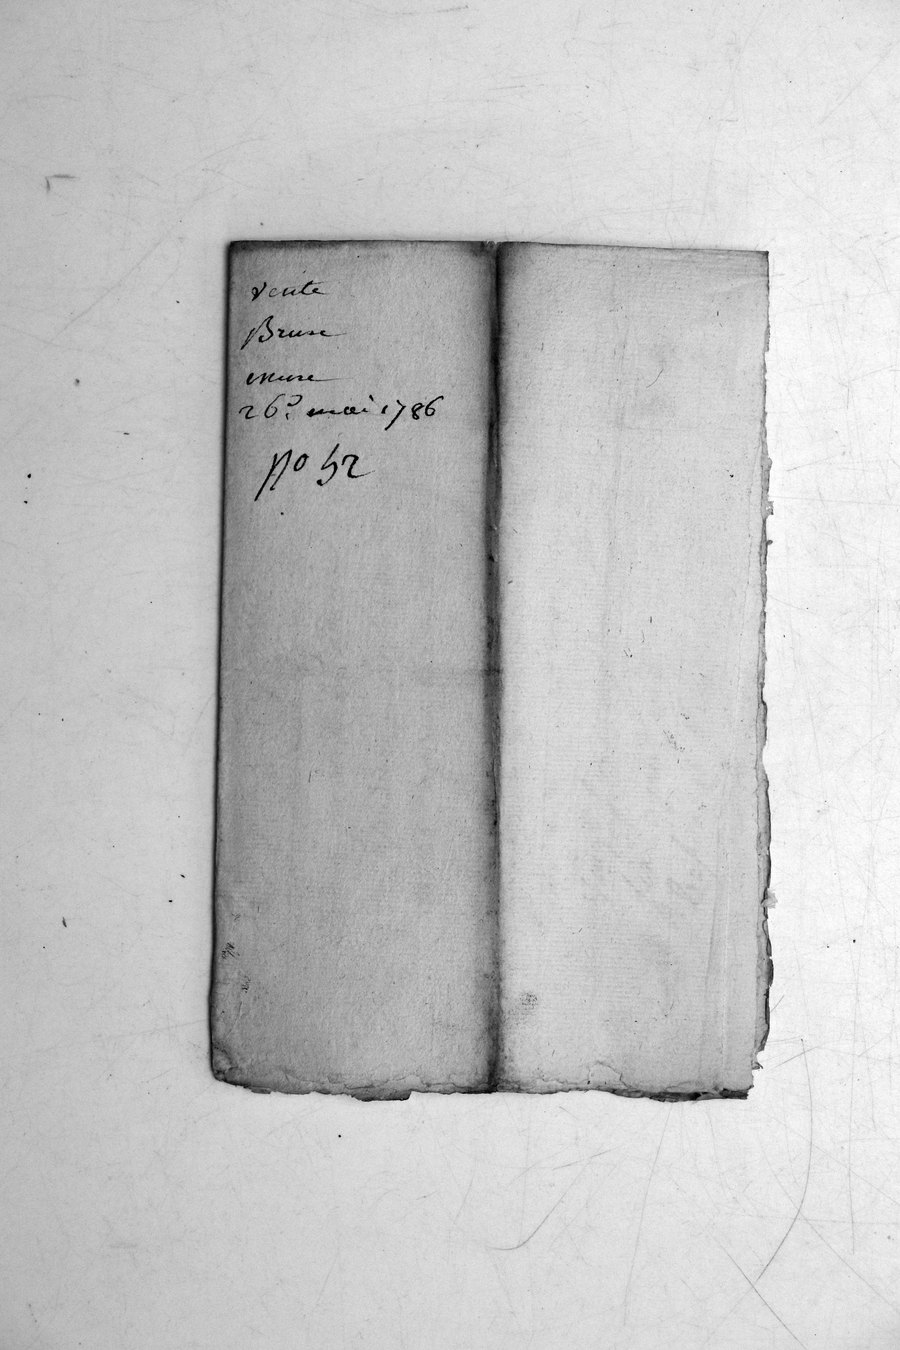 vente
Brune
26e. mai 1786
no 52